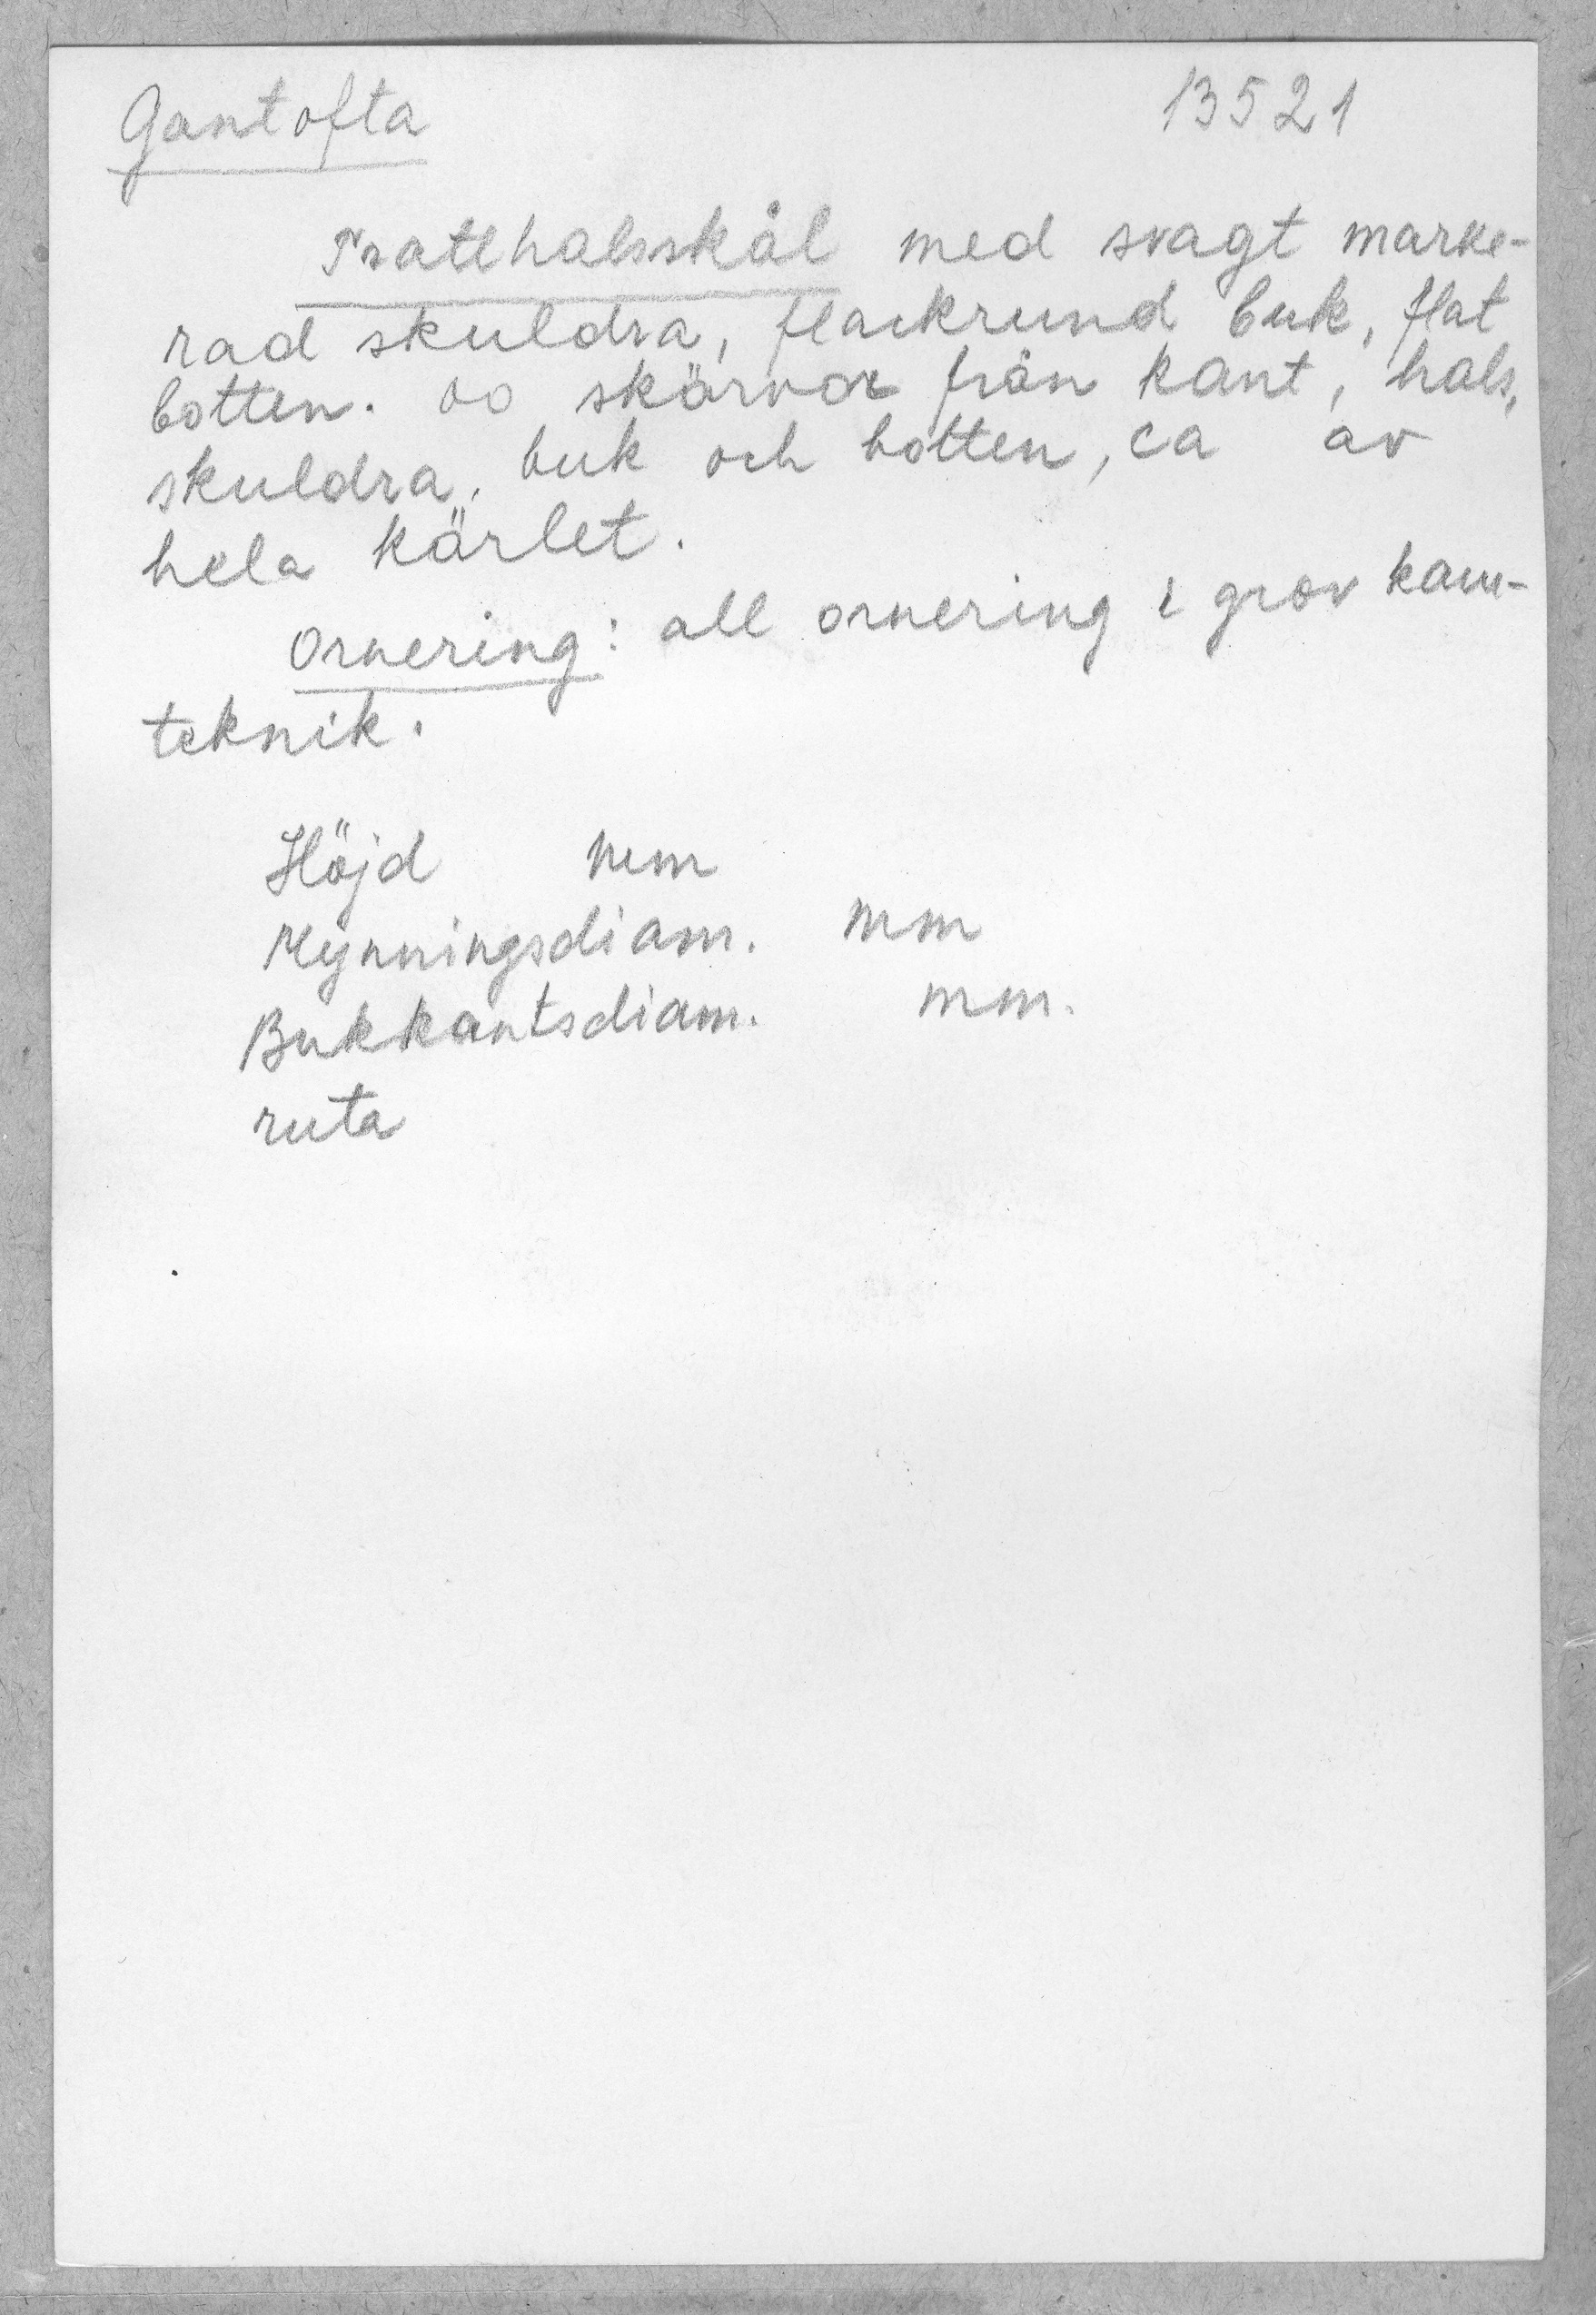 Gantofta 13521
Tratthalsskål med svagt marke-
rad skuldra, flackrund buk, flat
botten. oo skärvor från kant, hals,
skuldra, buk och botten, ca av
hela kärlet.
Ornering: all ornering i grov kam-
teknik.
Höjd mm
Mynningsdiam. mm
Bukkantsdiam. mm.
ruta